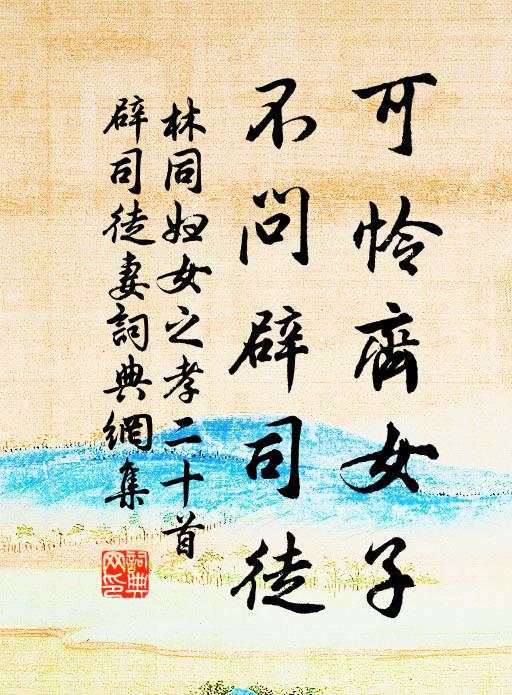 可怜齊女子
不問辟司徒
林同妇女之孝二十首
辟司徒妻詞典網集
詞典
网印